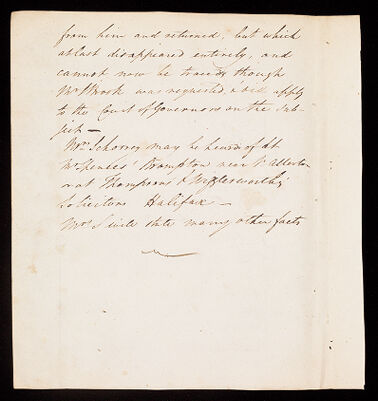 from him and returned, but which
at last disappeared entirely, and
cannot now be traced though
Mr Brook was requested, & did apply
to the Court of Governors on the sub-
ject —
Mrs Schorey may be heard of at
Mr Spences' Brompton near N. Allerton
or at Thompsons &
Solicitors Halifax —
Mrs S will state many other facts